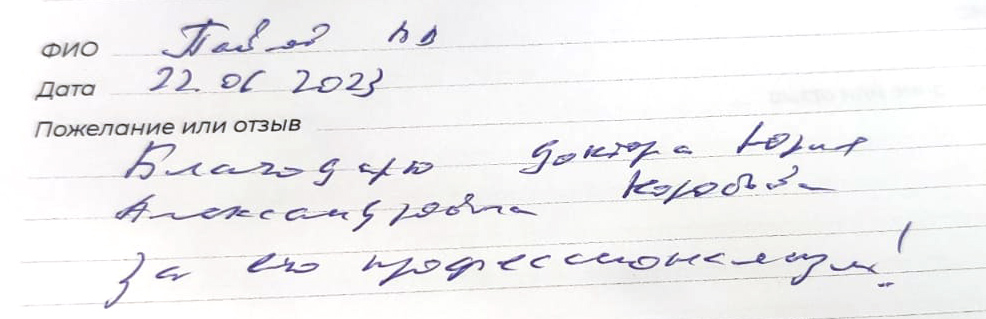 ФИО Павлов
Дата 22.06 2023
Пожелание или отзыв
Благодарю доктора Юрия
Александровича Коробова
За его профессионализм!